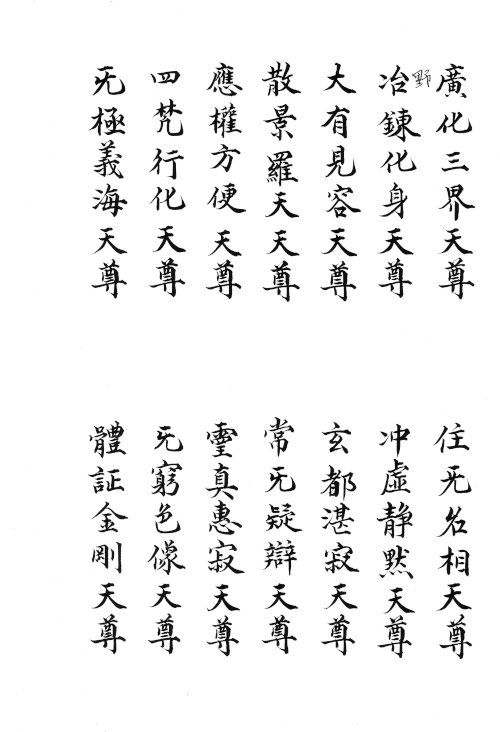 廣化三界天尊
住旡名相天尊
冶鍊化身天尊
野
冲虛静默天尊
大有見容天尊
玄都湛寂天尊
散景羅天天尊
常旡疑辯天尊
應權方便天尊
靈真惠寂天尊
四梵行化天尊
旡窮色像天尊
旡極義海天尊
體証金剛天尊